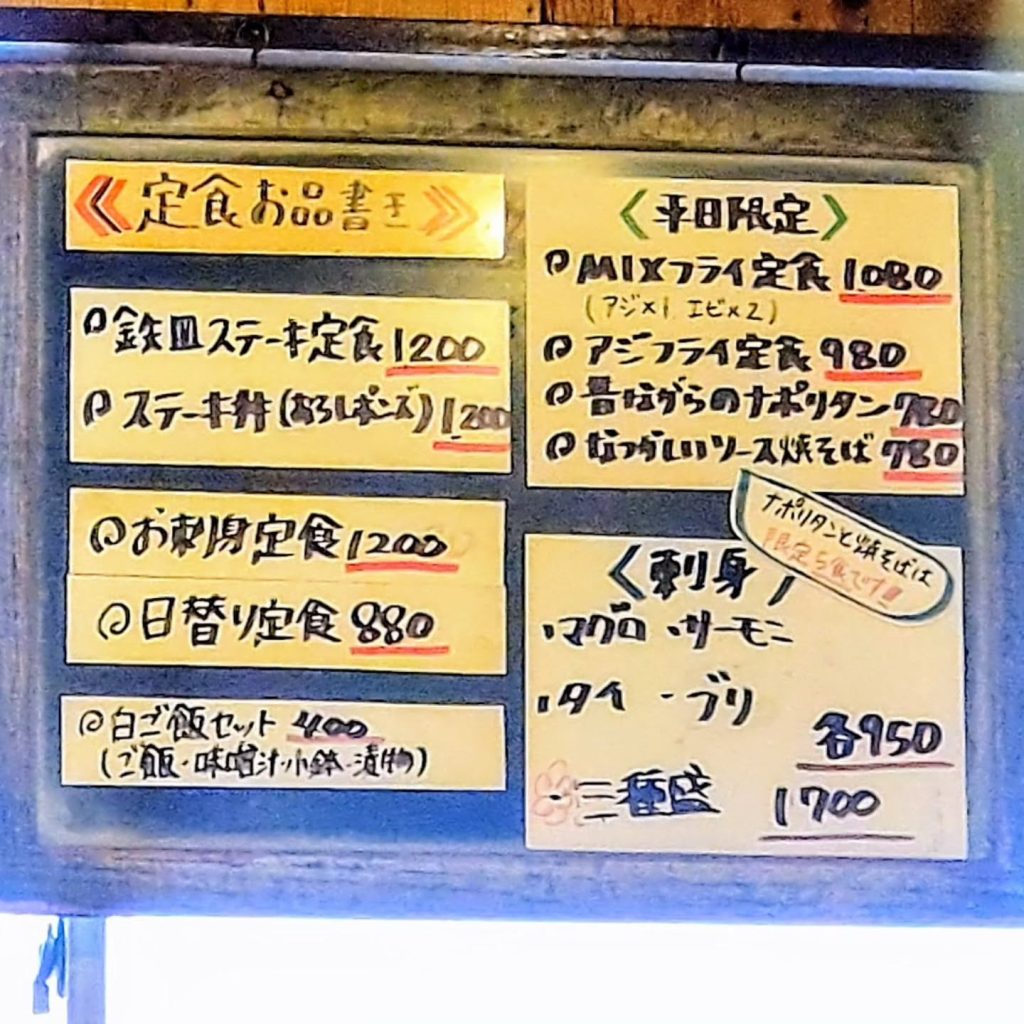 定食お品書き
鉄皿ステーキ定食 1200
ステーキ丼(おろしポンズ) 1,200
お刺身定食 1200
日替り定食 880
白ご飯セット 400
(ご飯・味噌汁・小鉢・漬物)
〈平日限定〉
MIXフライ定食 1080
(アジ×1 エビ×2)
アジフライ定食 980
昔ながらのナポリタン 780
なつかしいソース焼そば 780
ナポリタンと焼そばは
限定5食です!!
〈刺身〉
・マグロ ・サーモン
・タイ ・ブリ
各950
三種盛 1700